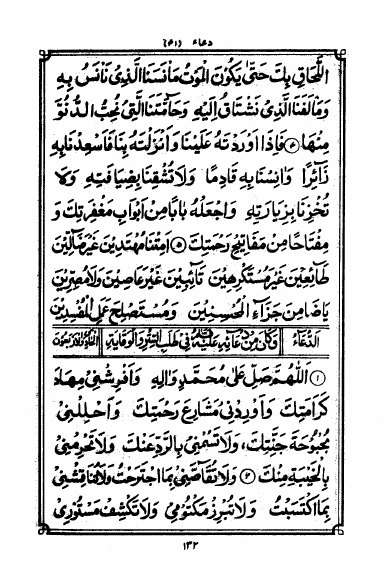 دعاء (۴۱)
اللَّحَاقِ بِكَ حَتّٰى يَكُوْنَ الْمَوْتُ مَأْنَسَنَا الَّذِيْ نَأْنَسُ بِهِ
وَمَأْلَفَنَا الَّذِيْ نَشْتَاقُ اِلَيْهِ وَحَامَّتَنَا الَّتِيْ نُحِبُّ الدُّنُوَّ
مِنْهَا ۞ فَاِذَا اَوْرَدْتَهُ عَلَيْنَا وَاَنْزَلْتَهُ بِنَا فَاَسْعِدْنَا بِهِ
زَآئِرًا وَاٰنِسْنَا بِهِ قَادِمًا وَلَا تُشْقِنَا بِضِيَافَتِهِ وَلَا
تُخْزِنَا بِزِيَارَتِهِ وَاجْعَلْهُ بَابًا مِنْ اَبْوَابِ مَغْفِرَتِكَ وَ
مِفْتَاحًا مِنْ مَفَاتِيْحِ رَحْمَتِكَ ۵ اَمِتْنَا مُهْتَدِيْنَ غَيْرَ ضَآلِّيْنَ
طَآئِعِيْنَ غَيْرَ مُسْتَكْرِهِيْنَ تَآئِبِيْنَ غَيْرَ عَاصِيْنَ وَلَا مُصِرِّيْنَ
يَا ضَامِنَ جَزَآءِ الْمُحْسِنِيْنَ وَمُسْتَصْلِحَ عَمَلِ الْمُفْسِدِيْنَ
الدُّعَاءُ وَكَانَ مِنْ دُعَائِهِ عَلَيْهِ السَّلَامُ فِيْ طَلَبِ السِّتْرِ وَالْوِقَايَةِ
۱ اَللّٰهُمَّ صَلِّ عَلٰى مُحَمَّدٍ وَاٰلِهِ وَاَفْرِشْنِيْ مِهَادَ
كَرَامَتِكَ وَاَوْرِدْنِيْ مَشَارِعَ رَحْمَتِكَ وَاَحْلِلْنِيْ
بُحْبُوْحَةَ جَنَّتِكَ، وَلَا تَسُمْنِيْ بِالرَّدِّ عَنْكَ وَلَا تَحْرِمْنِيْ
بِالْخَيْبَةِ مِنْكَ ۲ وَلَا تُقَاصَّنِيْ بِمَا اجْتَرَحْتُ وَلَا تُنَاقِشْنِيْ
بِمَا اكْتَسَبْتُ وَلَا تُبْرِزْ مَكْتُوْمِيْ وَلَا تَكْشِفْ مَسْتُوْرِيْ
۱۳۲